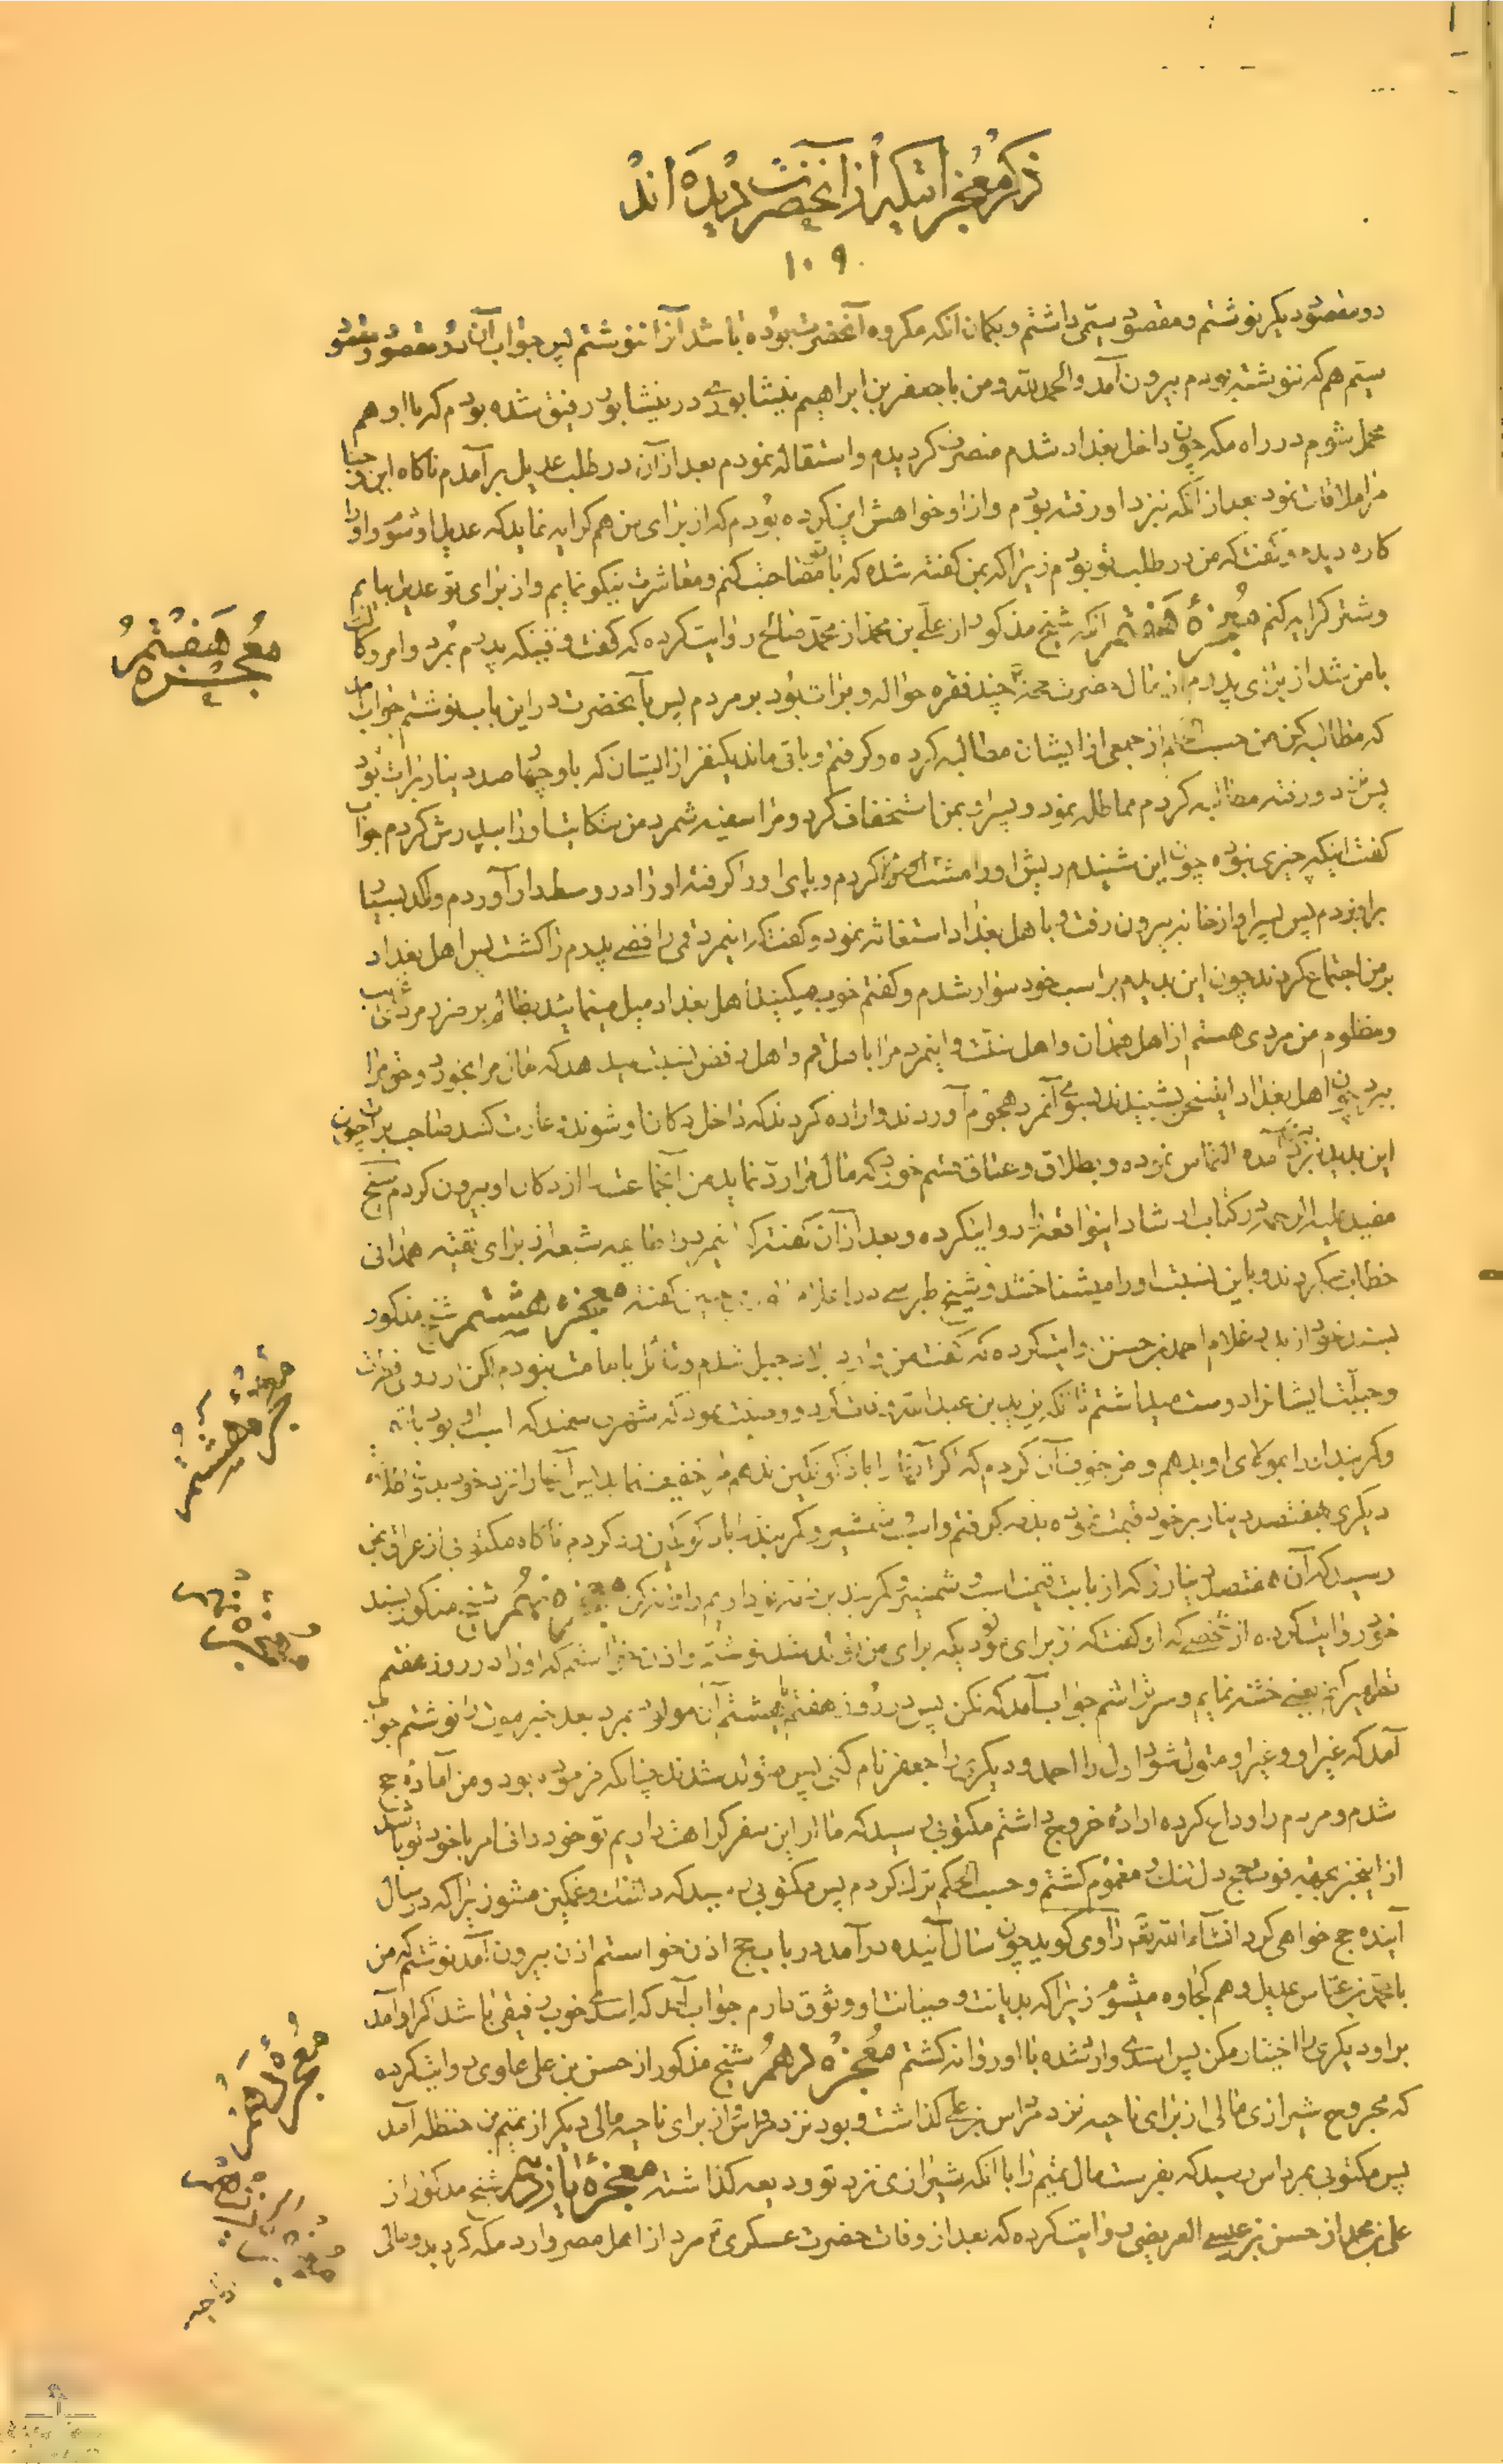 ذکر معجزاتیکه از آنحضرت دیده اند
۱۰۹
دو مقصود دیگر نوشتم و مقصود سیّمی داشتم و بکمان انکه مکروه آنحضرت بوده باشد آنرا ننوشتم پس جواب آن دو مقصود و مقصود
سیّم هم که ننوشته بودم بیرون آمد والحمد لله و من با جعفر بن ابراهیم نیشابوری در نیشابور رفیق شده بودم که با او هم
محمل شوم در راه مکه چون داخل بغداد شدم منصرف کردیدم و استقاله نمودم بعد از آن در طلب عدیل برآمدم ناکاه ابن وجنا
مرا ملاقات نمود بعد از آنکه نزد او رفته بودم و از او خواهش این کرده بودم که از برای من هم کرایه نماید که عدیل او شوم و او را
کاره دیدم و گفت که من در طلب تو بودم زیرا که بمن کفته شده که با تو مصاحبت کنم و معاشرت نیکو نمایم و از برای تو عدیل بیابم
وشتر کرایه کنم معجزهٔ هفتم انکه شیخ مذکور از علی بن محمد از محمد صالح روایت کرده که کفت وقتیکه پدرم بمرد و امر وکالت
با من شد از برای پدرم از مال حضرت حجة چند فقره حواله و برات بود بر مردم پس بآنحضرت در این باب نوشتم جواب آمد
که مطالبه کن من حسب الحکم از جمعی از ایشان مطالبه کرده و کرفتم و باقی ماند یکنفر از ایشان که باو چهارصد دینار برات بود
پس نزد او رفته مطالبه کردم مماطله نمود و پسر او بمن استخفاف کرد و مرا سفیه شمرد من شکایت او را به پدرش کردم جواب
کفت اینکه چیزی نبوده چون این شنیدم ریش او را مشت کردم و پای او را کرفته او را در وسط دار آوردم و لکد بسیار
بر او زدم پس پسر او از خانه بیرون رفت و باهل بغداد استغاثه نمود و کفت که اینمرد قمی رافضی پدرم را کشت پس اهل بغداد
بر من اجتماع کردند چون این بدیدم بر اسب خود سوار شدم و کفتم خوب میکنید اهل بغداد میل مینمائید بظالم بر ضرر مرد غریب
ومظلوم من مردی هستم از اهل همدان و اهل سنّت و اینمرد مرا باهل قم و اهل رفض نسبت میدهد که مال مرا بخورد و حق مرا
ببرد چون اهل بغداد این سخن بشنیدند بسوی آنمرد هجوم آوردند و اراده کردند که داخل دکان او شوند و غارت کنند صاحب برات چون
این بدید نزد من آمده التماس نموده و بطلاق و عتاق قسم خورد که مال مرا ردّ نماید من آنجماعت را از دکان او بیرون کردم شیخ
مفید علیه الرحمه در کتاب ارشاد اینواقعه را روایت کرده و بعد از آن کفته که اینمرد را طایفه شیعه از برای تقیّه همدانی
خطاب میکردند و باین نسبت او را میشناختند و شیخ طبرسی در اعلام الوری چنین کفته معجزه هشتم شیخ مذکور
بسند خود از بدر غلام احمد بن حسن روایت کرده که گفت من وارد بلاد جبل شدم و قائل بامامت نبودم لکن از روی فطرت
و جبلّت ایشانرا دوست میداشتم تا آنکه یزید بن عبد الله وفات کرد و وصیّت نمود که شهری سمند که اسب او بود باشمشیر
وکمربند او را بمولای او بدهم و من خوف آن کردم که اگر آنها را باذکوتکین ندهم مرا خفیف نماید پس آنها را نزد خود بدون اطلاع
دیکری بهفتصد دینار بر خود قیمت نموده بذمه کرفتم و اسب و شمشیر و کمربند را باذکوتکین رد کردم ناکاه مکتوبی از عراق بمن
رسید که آن هفتصد دینار زر که از بابت قیمت اسب و شمشیر و کمربند بر ذمه تو داریم روانه کن معجزه نهم شیخ مذکور بسند
خود روایت کرده از شخصی که او کفت که از برای مولودیکه برای من تولد شد نوشته و اذن خواستم که او را در روز هفتم
تطهیر کنم یعنی ختنه نمایم و سر تراشم جواب آمد که نکن پس در روز هفتم یا هشتم آن مولود بمرد بعد خبر موت را نوشتم جواب
آمد که غیر او و غیر او متولد شود اول را احمد و دیکری را جعفر نام کنی پس متولد شدند چنانکه فرموده بود و من آمادهٔ حج
شدم و مردم را وداع کرده ارادهٔ خروج داشتم مکتوبی رسید که ما از این سفر کراهت داریم تو خود دانی امر با خود تو باشد
از اینخبر بجهة فوت حج دل تنک و مغموم کشتم و حسب الحکم ترک کردم پس مکتوبی رسید که دلتنک و غمکین مشو زیرا که در سال
آینده حج خواهی کرد انشاء الله تعالی راوی کوید چون سال آینده درآمد در باب حج اذن خواستم اذن بیرون آمد نوشتم که من
با محمد بن عباس عدیل و هم کجاوه میشوم زیرا که بدیانت و صیانت او وثوق دارم جواب آمد که اسدی خوب رفیقی باشد اکر او آمد
بر او دیکری را اختیار مکن پس اسدی وارد شده با او روانه کشتم معجزهٔ دهم شیخ مذکور از حسن بن علی علوی روایت کرده
که مجروح شیرازی مالی از برای ناحیه نزد مرداس بن علی کذاشت و بود نزد مرداس از برای ناحیه مالی دیکر از تمیم بن حنظله آمد
پس مکتوبی بمرداس رسید که بفرست مال تمیم را با آنکه شیرازی نزد تو ودیعه کذاشته معجزهٔ یازدهم شیخ مذکور از
علی بن محمد از حسن بن عیسی العریضی روایت کرده که بعد از وفات حضرت عسکری ع مردی از اهل مصر وارد مکه کردید و مالی
معجزه هفتم
معجزهٔ هشتم
معجزه نهم
معجزهٔ دهم